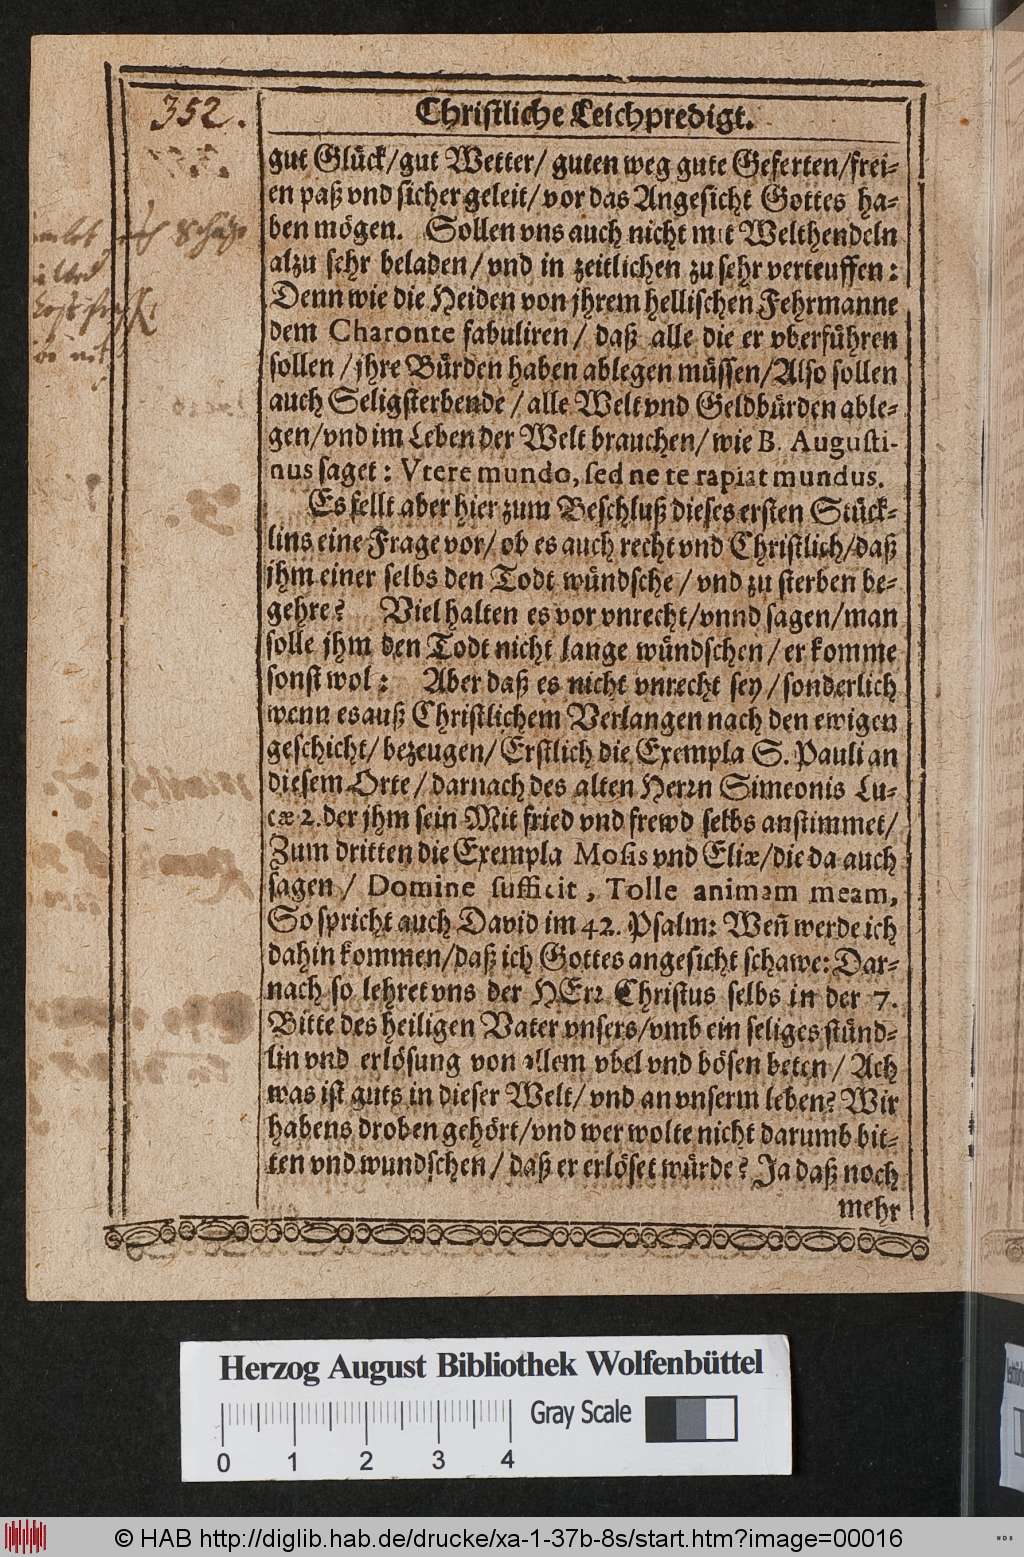 352.
Christliche Leichpredigt.
gut Glück/gut Wetter/ guten weg gute Geferten/frei-
en paß vnd sicher geleit/ vor das Angesicht Gottes ha-
ben mögen. Sollen vns auch nicht mit Welthendeln
alzu sehr beladen/ vnd in zeitlichen zu sehr verteuffen:
Denn wie die Heiden von jhrem hellischen Fehrmanne
dem Charonte fabuliren/ daß alle die er vberführen
sollen / jhre Bürden haben ablegen müssen/Also sollen
auch Seligsterbende / alle Welt vnd Geldbürden able-
gen/vnd im Leben der Welt brauchen/ wie B. Augusti-
nus saget: Vtere mundo, sed ne te rapiat mundus.
Es fellt aber hier zum Beschluß dieses ersten Stück-
lins eine Frage vor/ ob es auch recht vnd Christlich/daß
jhm einer selbs den Todt wündsche / vnd zu sterben be-
gehre? Viel halten es vor vnrecht/vnnd sagen/man
solle jhm den Todt nicht lange wündschen/ er komme
sonst wol: Aber daß es nicht vnrecht sey / sonderlich
wenn es auß Christlichem Verlangen nach den ewigen
geschicht/ bezeugen/ Erstlich die Exempla S. Pauli an
diesem Orte/ darnach des alten Herrn Simeonis Lu-
cæ 2. der jhm sein Mit fried vnd frewd selbs anstimmet/
Zum dritten die Exempla Mosis vnd Eliæ/die da auch
sagen / Domine sufficit, Tolle animam meam,
So spricht auch David im 42. Psalm: Weñ werde ich
dahin kommen/daß ich Gottes angesicht schawe: Dar-
nach so lehret vns der HErr Christus selbs in der 7.
Bitte des heiligen Vater vnsers/vmb ein seliges stünd-
lin vnd erlösung von allem vbel vnd bösen beten/ Ach
was ist guts in dieser Welt/ vnd an vnserm leben? Wir
habens droben gehört/vnd wer wolte nicht darumb bit-
ten vnd wundschen / daß er erlöset würde? Ja daß noch
mehr
Herzog August Bibliothek Wolfenbüttel
Gray Scale
0 1 2 3 4
© HAB http://diglib.hab.de/drucke/xa-1-37b-8s/start.htm?image=00016